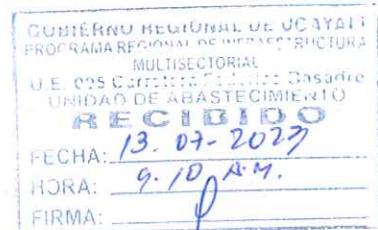 GOBIERNO REGIONAL DE UCAYALI
PROGRAMA REGIONAL DE INFRAESTRUCTURA
MULTISECTORIAL
U.E. 005 Carretera Federico Basadre
UNIDAD DE ABASTECIMIENTO
RECIBIDO
FECHA: 13-07-2023
HORA: 9.10 A.M.
FIRMA: